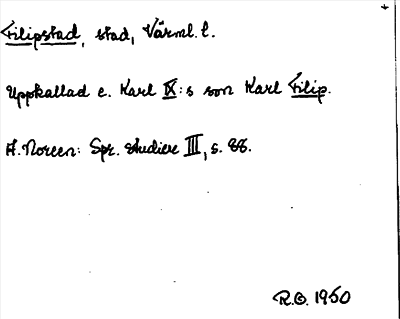 Filipstad, stad, Värml. l.
Uppkallad e. Karl IX:s son Karl Filip.
A. Noreen: Spr. studier III, s. 88.
R.O. 1950